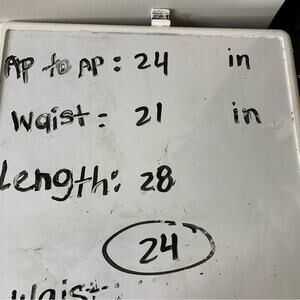 Ap to Ap: 24 in
Waist: 21 in
Length: 28
24
Waist: